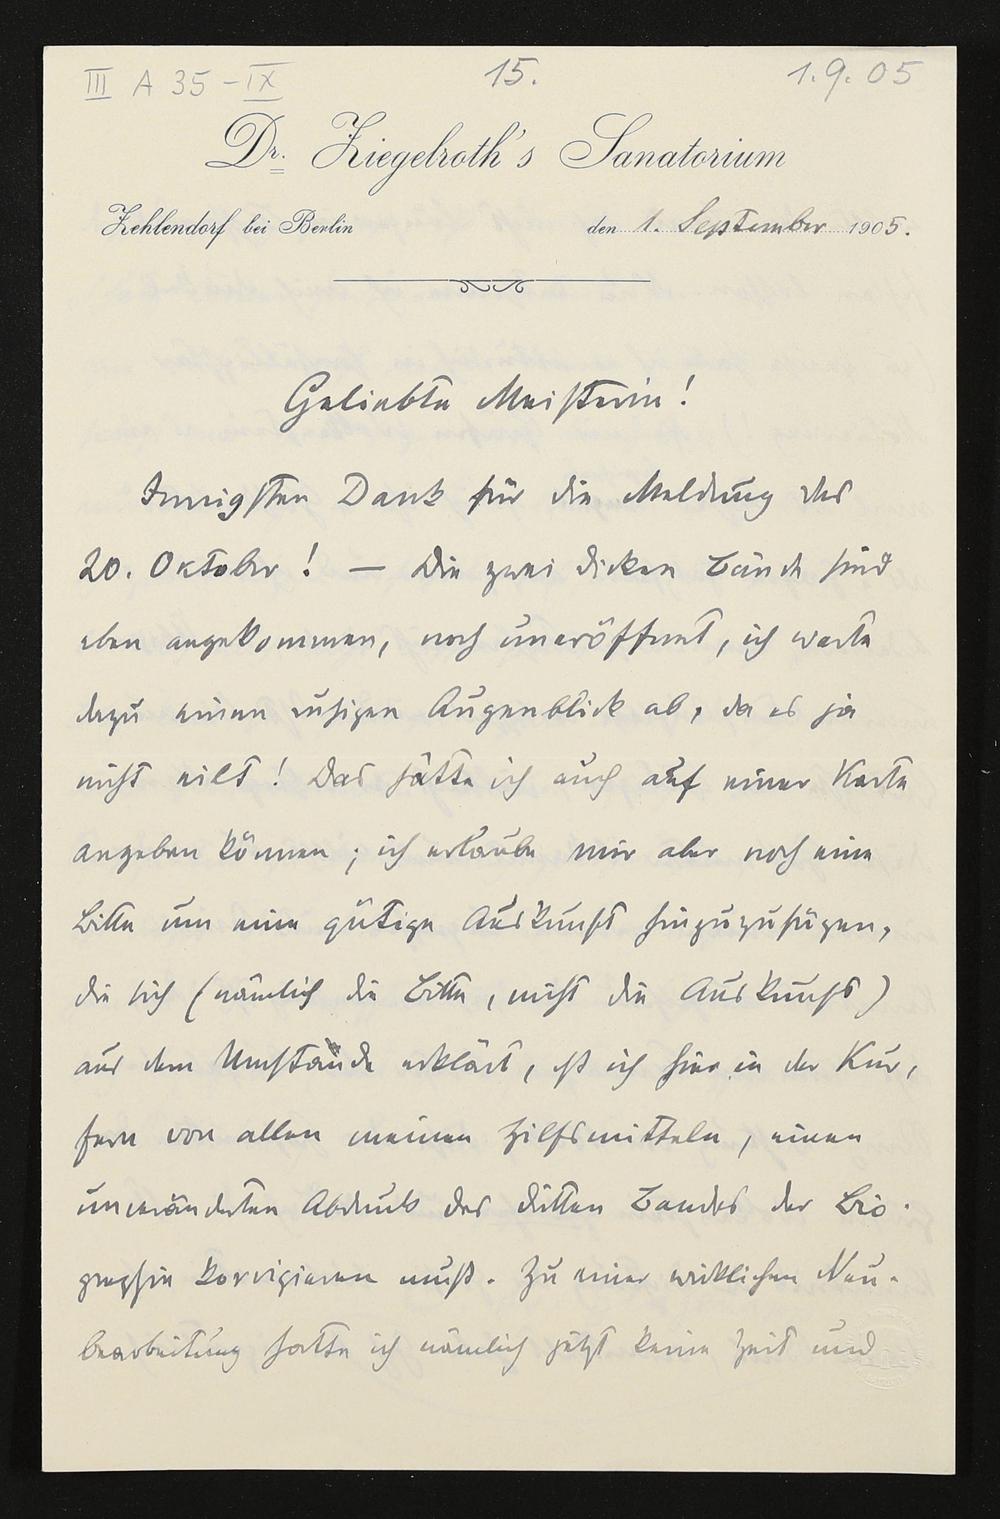 III A 35 - IX 15. 1.9.05
Dr. Ziegelroth's Sanatorium
Zehlendorf bei Berlin den 1. September 1905.
Geliebte Meisterin!
Innigsten Dank für die Meldung des
20. Oktober! — Die zwei dicken Bände sind
eben angekommen, noch uneröffnet, ich warte
dazu einen ruhigen Augenblick ab, da es ja
nicht eilt! Das hätte ich auch auf einer Karte
angeben können; ich erlaube mir aber noch eine
Bitte um eine gütige Auskunft hinzuzufügen,
die sich (nämlich die Bitte, nicht die Auskunft)
aus dem Umstande erklärt, dß ich hier in der Kur,
fern von allen meinen Hilfsmitteln, einen
unveränderten Abdruck des dritten Bandes der Bio-
graphie korrigieren muß. Zu einer wirklichen Neu-
bearbeitung hatte ich nämlich jetzt keine Zeit und